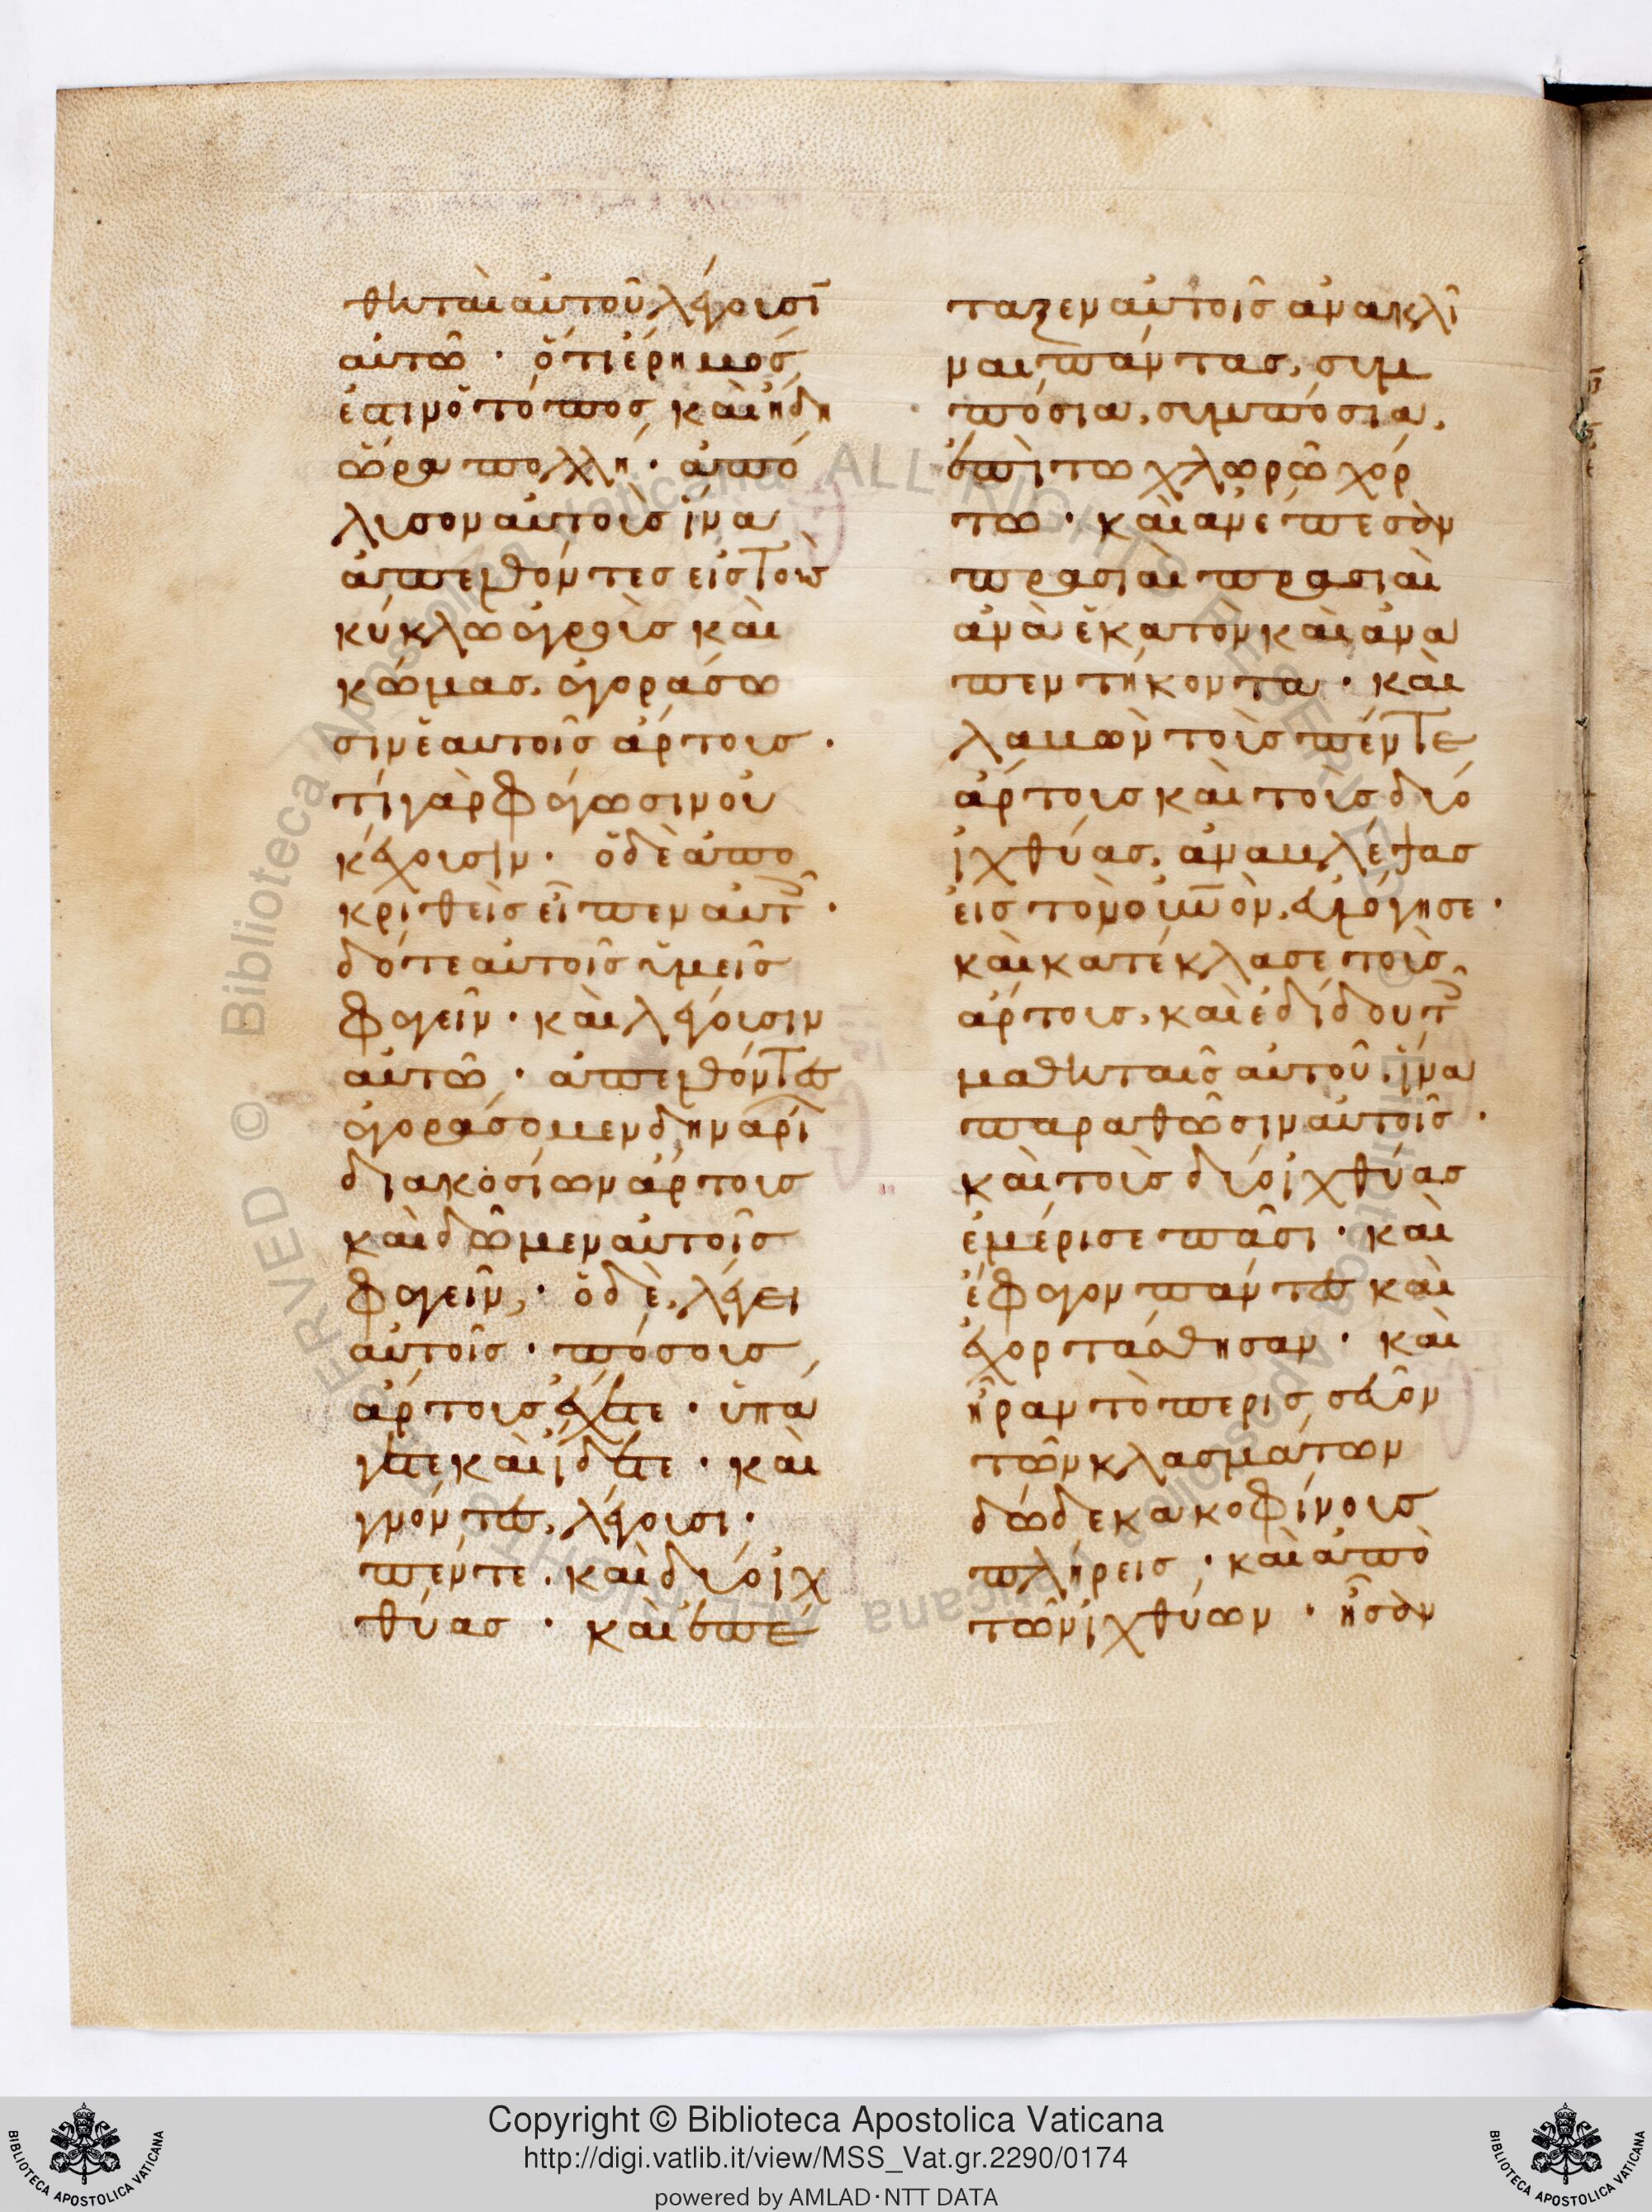 θηταὶ αὐτοῦ λέγουσῑ
αὐτῶ · ὅτι ἔρημός
ἐστιν ὁ τόπος καὶ ἤδη
ὥρα πολλή · ἀπό
λυσον αὐτοὺς ἵνα
ἀπελθόντες εἰς τοὺς
κύκλω ἀγροὺς καὶ
κώμας, ἀγοράσω
σιν ἑαυτοῖς ἄρτους ·
τί γὰρ φάγωσιν οὐ
κ ἔχουσιν · ὁ δὲ ἀπο
κριθεὶς εἶπεν αὐτ ·
δότε αὐτοῖς ὑμεῖς
φαγεῖν · καὶ λέγουσιν
αὐτῶ · ἀπελθόντες
ἀγοράσομεν δηναρί
διακοσίων ἄρτους
καὶ δῶμεν αὐτοῖς
φαγεῖν · ὁ δὲ, λέγει
αὐτοῖς · πόσους
ἄρτους ἔχετε · ὑπά
γετε καὶ ἴδετε · καὶ
γνόντες, λέγουσι ·
πέντε, καὶ δύο ἰχ
θύας · καὶ ἐπέ
ταξεν αὐτοῖς ἀνακλῖ
ναι πάντας, συμ
πόσια, συμπόσια,
ἐπὶ τω χλωρῶ χόρ
τω · καὶ ἀνέπεσον
πρασιαὶ πρασιαὶ
ἀνὰ ἑκατὸν καὶ ἀνα
πεντήκοντα · καὶ
λαβὼν τοὺς πέντε
ἄρτους καὶ τοὺς δύο
ἰχθύας, ἀναβλέψας
εἰς τὸν οὐν̅ὸν, εὐλόγησε ·
καὶ κατέκλασε τοὺς
ἄρτους, καὶ ἐδίδου τ
μαθηταῖς αὐτοῦ, ἵνα
παραθῶσιν αὐτοῖς ·
καὶ τοὺς δύο ἰχθύας
ἐμέρισε πᾶσι · καὶ
ἔφαγον πάντες καὶ
ἐχορτάσθησαν · καὶ
ἦραν τὸ περισσεῦον
τῶν κλασμάτων
δώδεκα κοφίνους
πλήρεις · καὶ ἀπὸ
τῶν ἰχθύων · ἦσαν
Copyright © Biblioteca Apostolica Vaticana
http://digi.vatlib.it/view/MSS_Vat.gr.2290/0174
powered by AMLAD·NTT DATA
BIBLIOTECA APOSTOLICA VATICANA
BIBLIOTECA APOSTOLICA VATICANA